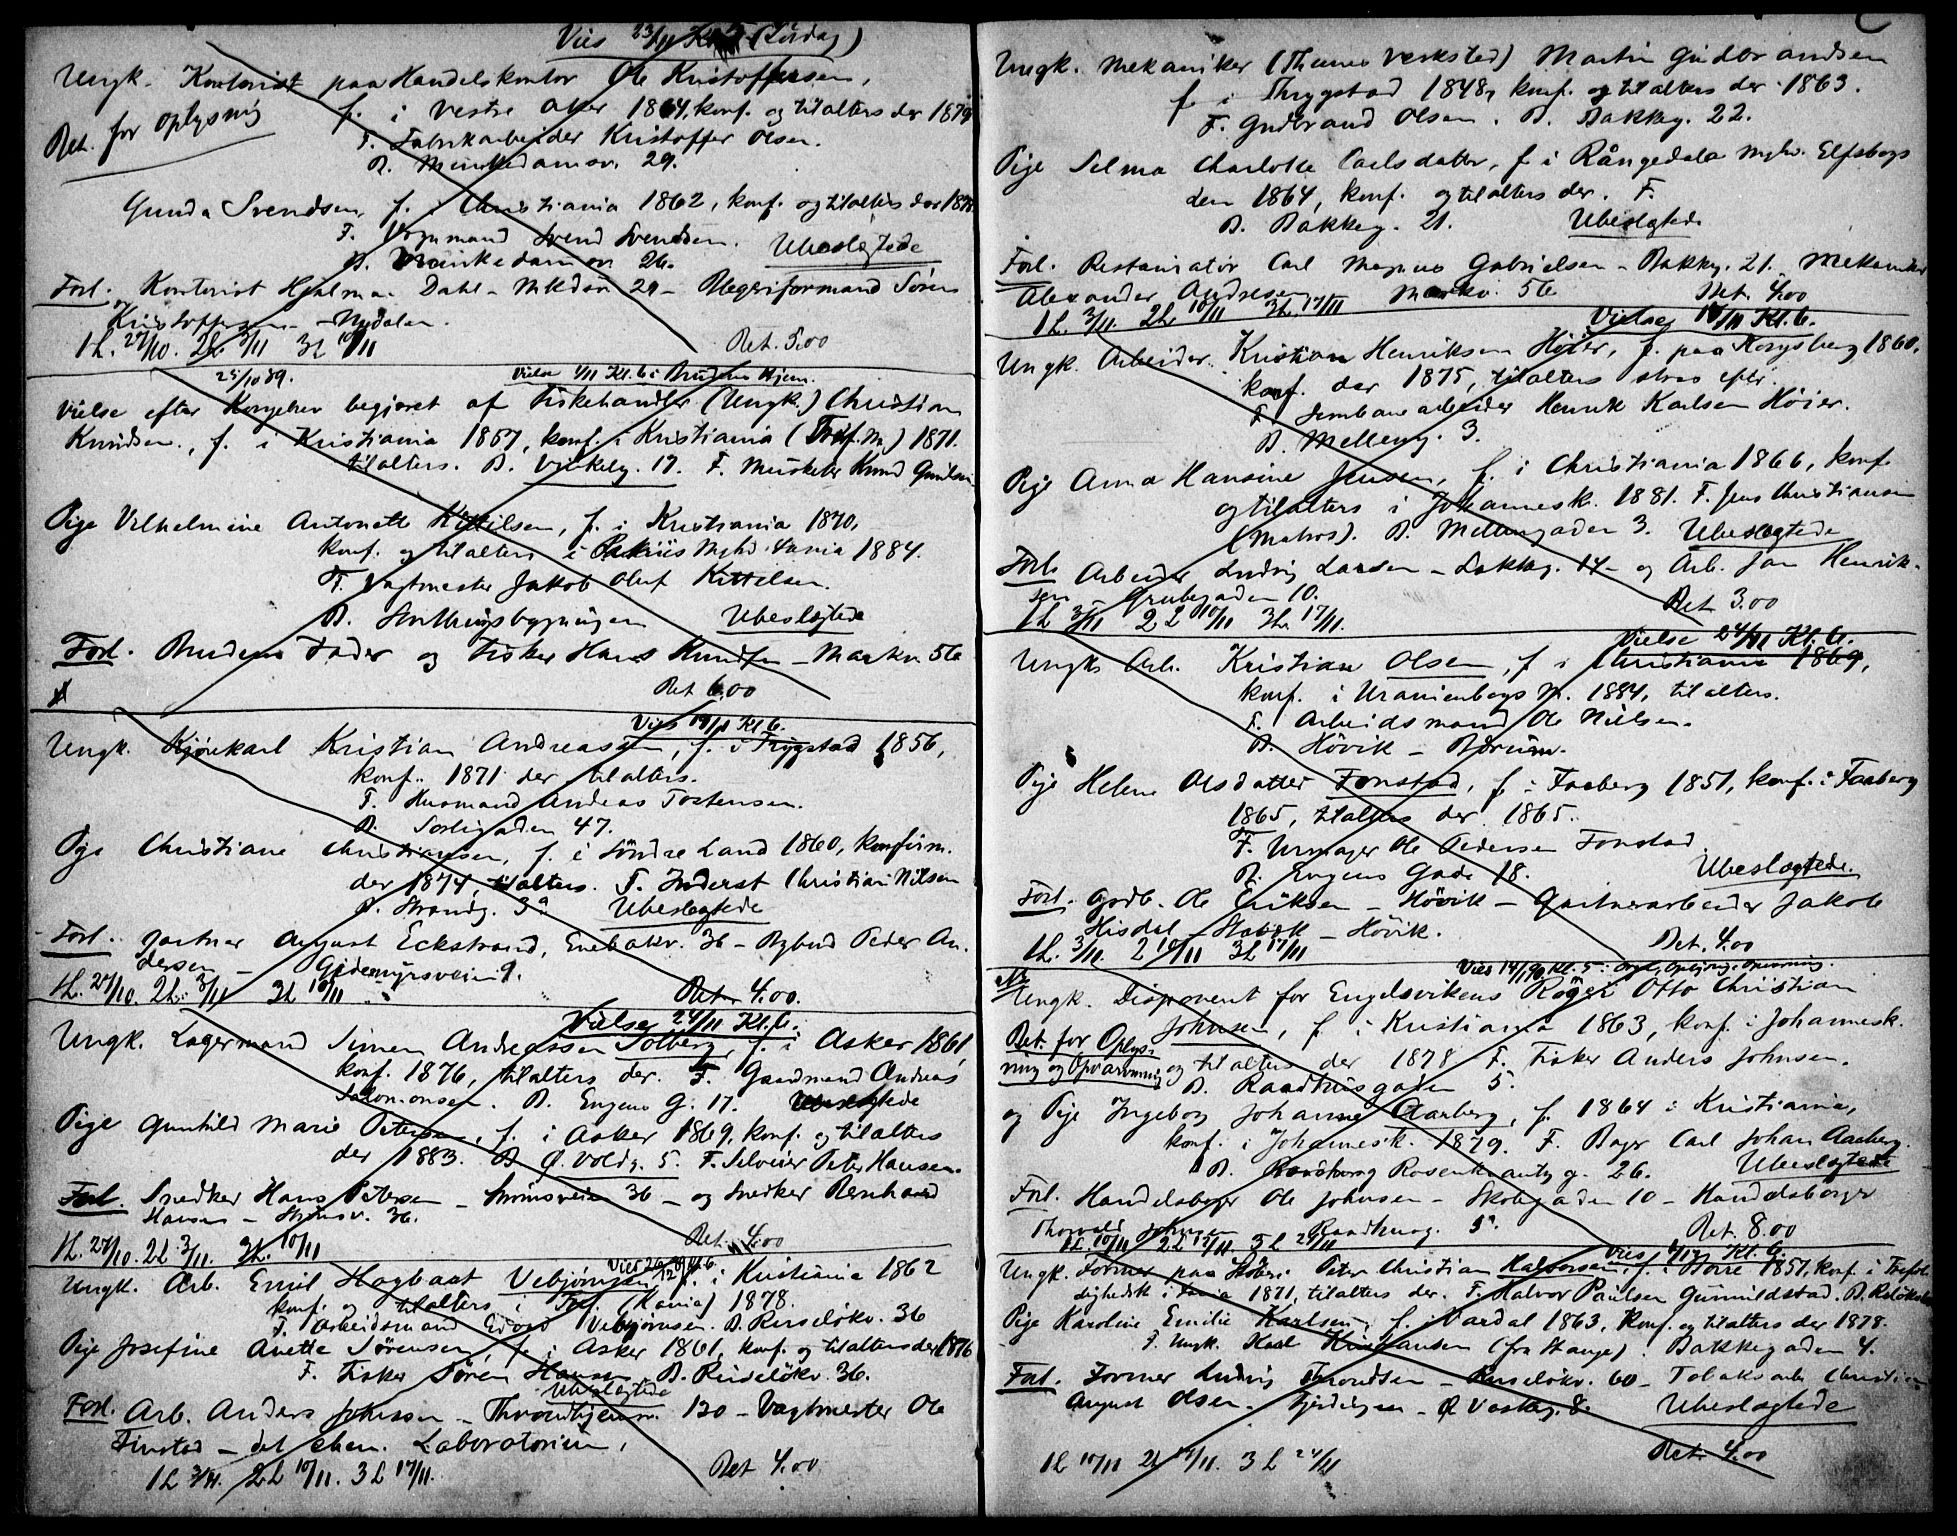 Vies 23/11 Kl. (Lørdag)
Ungk. Kontorist paa Handelskontor Ole Kristoffersen,
f. i Vestre Aker 1864, konf. og til alters der 1879
Bet. for oplysnig
F. Fabrikarbeider Kristoffer Olsen.
B. Munkedamsv. 29.
Gunda Svendsen, f. i Christiania 1862, konf. og til alters der
F. Vognmand Svend Svendsen. Ubeslegtede
B. Munkedamsv. 26.
Forl. Kontorist Hjalmar Dahl - Mkdsv 29 - Blegeriformand Sören
og Kristoffersen - Nydalen.
1 L. 27/10. 2 L. 3/11 3 L 10/11 Bet. 5.00
25/10 89. Vielse 1/11 Kl. 6 i Brudens Hjem.
Vielse efter Kongebrev begjæret af Fiskehandler (Ungk.) Christian
Knudsen, f. i Kristiania 1857, konf. i Kristiania (Tref. M.) 1871.
til alters. B. 17. F. Musketer Knud
Pige Vilhelmine Antonette Kittilsen, f. i Kristiania 1870,
konf. og til alters i 1884.
F. Vagtmester Jakob Oluf Kittelsen.
B. Storthingsbygningen Ubeslegtede
Forl. Brudens Fader og Fisker Hans Knudsen - Markv. 56
Bet 6.00
Vies 17/11 Kl. 6.
Ungk. Kjørekarl Kristian Andreassen, f. i Trygstad 1856,
konf. 1871 der til alters.
F. Husmand Andreas Torstensen.
B. Sorligaden 47.
Pige Christiane Christiansen, f. i Söndre Land 1860, konfirm.
der 1874, til alters. F. Inderst Christian Nilsen
B. Strandg. 3a Ubeslegtede
Forl. Gartner August Eckstrand, Enebakv. 36 - Bybud Peder An-
dersen - Gjedemyrsveien 9.
1 L. 27/10. 2 L. 3/11 3 L 10/11 Bet. 4.00.
Vielse 24/11 Kl. 6.
Ungk. Lagermand Simen Andreassen Solberg, f. i Asker 1861
konf. 1876, til alters der. F. Gaardmand Andreas
Salomonsen. B. Eugens G. 17. Ubeslegtede
Pige Gunhild Marie Petersen, f. i Asker 1869, konf. og til alters
der 1883. B. Ø. Voldg. 5. F. Peter Hansen.
Forl. Snedker Hans Petersen - Strömsveien 36 - og Snedker Bernhard
Hansen - Strömsv. 36.
1 L. 27/10. 2 L 3/11. 3 L. 10/11 Bet. 4.00
Vies 26/12 89 Kl. 6.
Ungk. Arb. Emil Hagbart Vebjörnsen f. i Kristiania 1862
konf. og til alters i Tref. (Kania) 1878.
F. Arbeidsmand Vebjörnsen. B. Ruselökv. 36
Pige Josefine Anette Sørensen, f. i Asker 1861, konf. og til alters der 1876
F. Fisker Søren Hansen B. Ruselökv. 36.
Ubeslegtede
Forl. Arb. Anders Johnsen - Throndhjemsv. 120 - Vagtmester Ole
Finstad - det chem. Laboratorium.
1 L 3/11. 2 L 10/11. 3 L 17/11. Bet 4.00
Ungk. Mekaniker (Thunes Verksted) Martin Gudbrandsen
f. i Thrygstad 1848, konf. og til alters der 1863.
F. Gudbrand Olsen. B. Bakkeg. 22.
Pige Selma Charlotte Carlsdatter, f. i Rångedala Elfsborgs
den 1864, konf. og til alters der. F.
B. Bakkeg. 21. Ubeslegtede
Forl. Restauratør Carl Magnus Gabrielsen - Bakkeg. 21. Mekaniker
Alexander Andresen Markv. 56 Bet. 4.00
1 L. 3/11. 2 L. 10/11 3 L. 17/11
Vielse 17/11 Kl. 6.
Ungk. Arbeider Kristian Henriksen Höier, f. paa Kongsberg 1860,
konf. der 1875, til alters strax efter.
F. Jernbanearbeider Henrik Karlsen Höier.
B. Mellemg. 3.
Pige Anna Hansine Jensen, f. i Christiania 1866, konf.
og til alters i Johannesk. 1881. F. Jens Christiansen
(Matros). B. Mellemgaden 3. Ubeslegtede
Forl. Arbeider Ludvig Larsen - Lakkeg. 14 - og Arb. Jan Henrik-
sen Grubegaden 10.
1 L 3/11 2 L 10/11 3 L. 17/11. Bet 3.00
Vielse 24/11 Kl. 6.
Ungk. Arb. Kristian Olsen, f. i Christiania 1869,
konf. i Uranienborgs M. 1884, til alters.
F. Arbeidsmand Ole Nielsen.
B. Hövik - Bærum.
Pige Helene Olsdatter Fonstad, f. i Faaberg 1851, konf. i Faaberg
1865, til alters der 1865.
F. Urmager Ole Pedersen Fonstad
B. Eugens Gade 18. Ubeslegtede.
Forl. Gartner Ole Eriksen - Hövik - Gartnerarbeider Jakob
Hisdal - Stabek - Hövik.
1 L. 3/11. 2 10/11 3 L 17/11 Bet. 4.00
Vies 14/1 90 Kl. 5: Orgel, Oplysnig, Opvarming.
Ungk. Disponent for Engelsvikens Røgeri Otto Christian
Johnsen, f. i Kristiania 1863, konf. i Johannesk.
Bet. for Oplys-
ning og Opvarmning
og til alters der 1878 F. Fisker Anders Johnsen.
B. Raadhusgaden 5.
og Pige Ingeborg Johanne Aarberg, f. 1864 i Kristiania,
konf. i Johannesk. 1879. F. Bager Carl Johan Aarberg.
B. Rosenkrantz g. 26. Ubeslegtede
Forl. Handelsborger Ole Johnsen - Skolegaden 10 - Handelsborger
Thorvald Johnsen - Raadhusg. 5a. Bet. 8.00
1 L. 10/11 2 L 17/11. 3 L 24/11
Vies 1/12 Kl. 6.
Ungk. Former paa Peter Christian Halvorsen, f. i 1857, konf. i Trefol-
dighedsk. i 1871, til alters der. F. Halvor Paulsen Gunnildstad. B. Ruselökv.
Pige Karoline Emilie Karlsen, f. i Vardal 1863, konf. og til alters der 1878.
F. Ungk. Karl Kristiansen (fra Stange). Bakkegaden 4.
Forl. Former Ludvig Throndsen - Ruselökv. 60 - Tobaksarb. Christian
August Olsen - - Ø Vaskeg. 8. Ubeslegtede
1 L 10/11 2 L 17/11. 3 L 24/11 Bet. 4.00